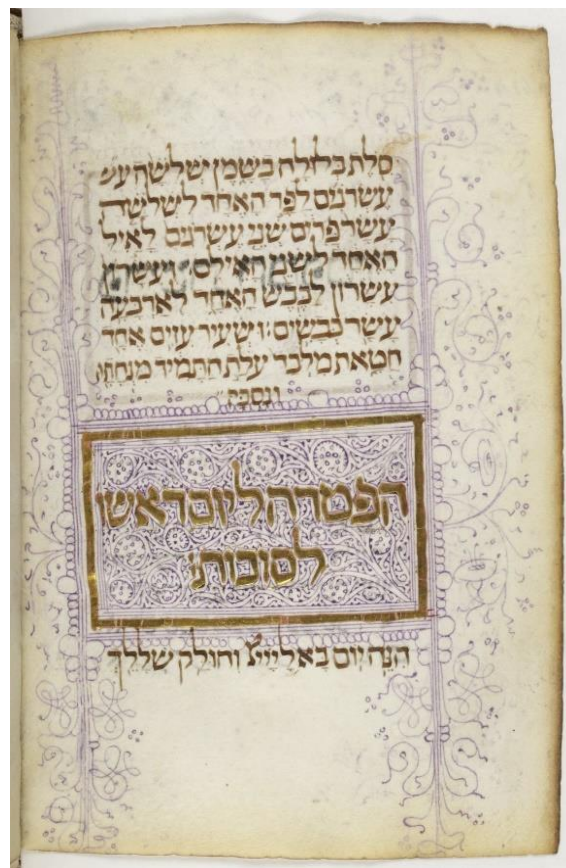 סלת בלולה בשמן ישלשה עש
עשרנים לפר האחד לשלשה
עשר פרים שני עשרנים לאיל
האחד לשני האילם ועשרון
עשרון לכבש האחד לארבעה
עשר כבשים ושעיר עזים אחד
חטאת מלבד עלת התמיד מנחתה
ונסכה
הפטרה ליום ראשו
לסוכות
הנה יום בא לייי וחולק שללך